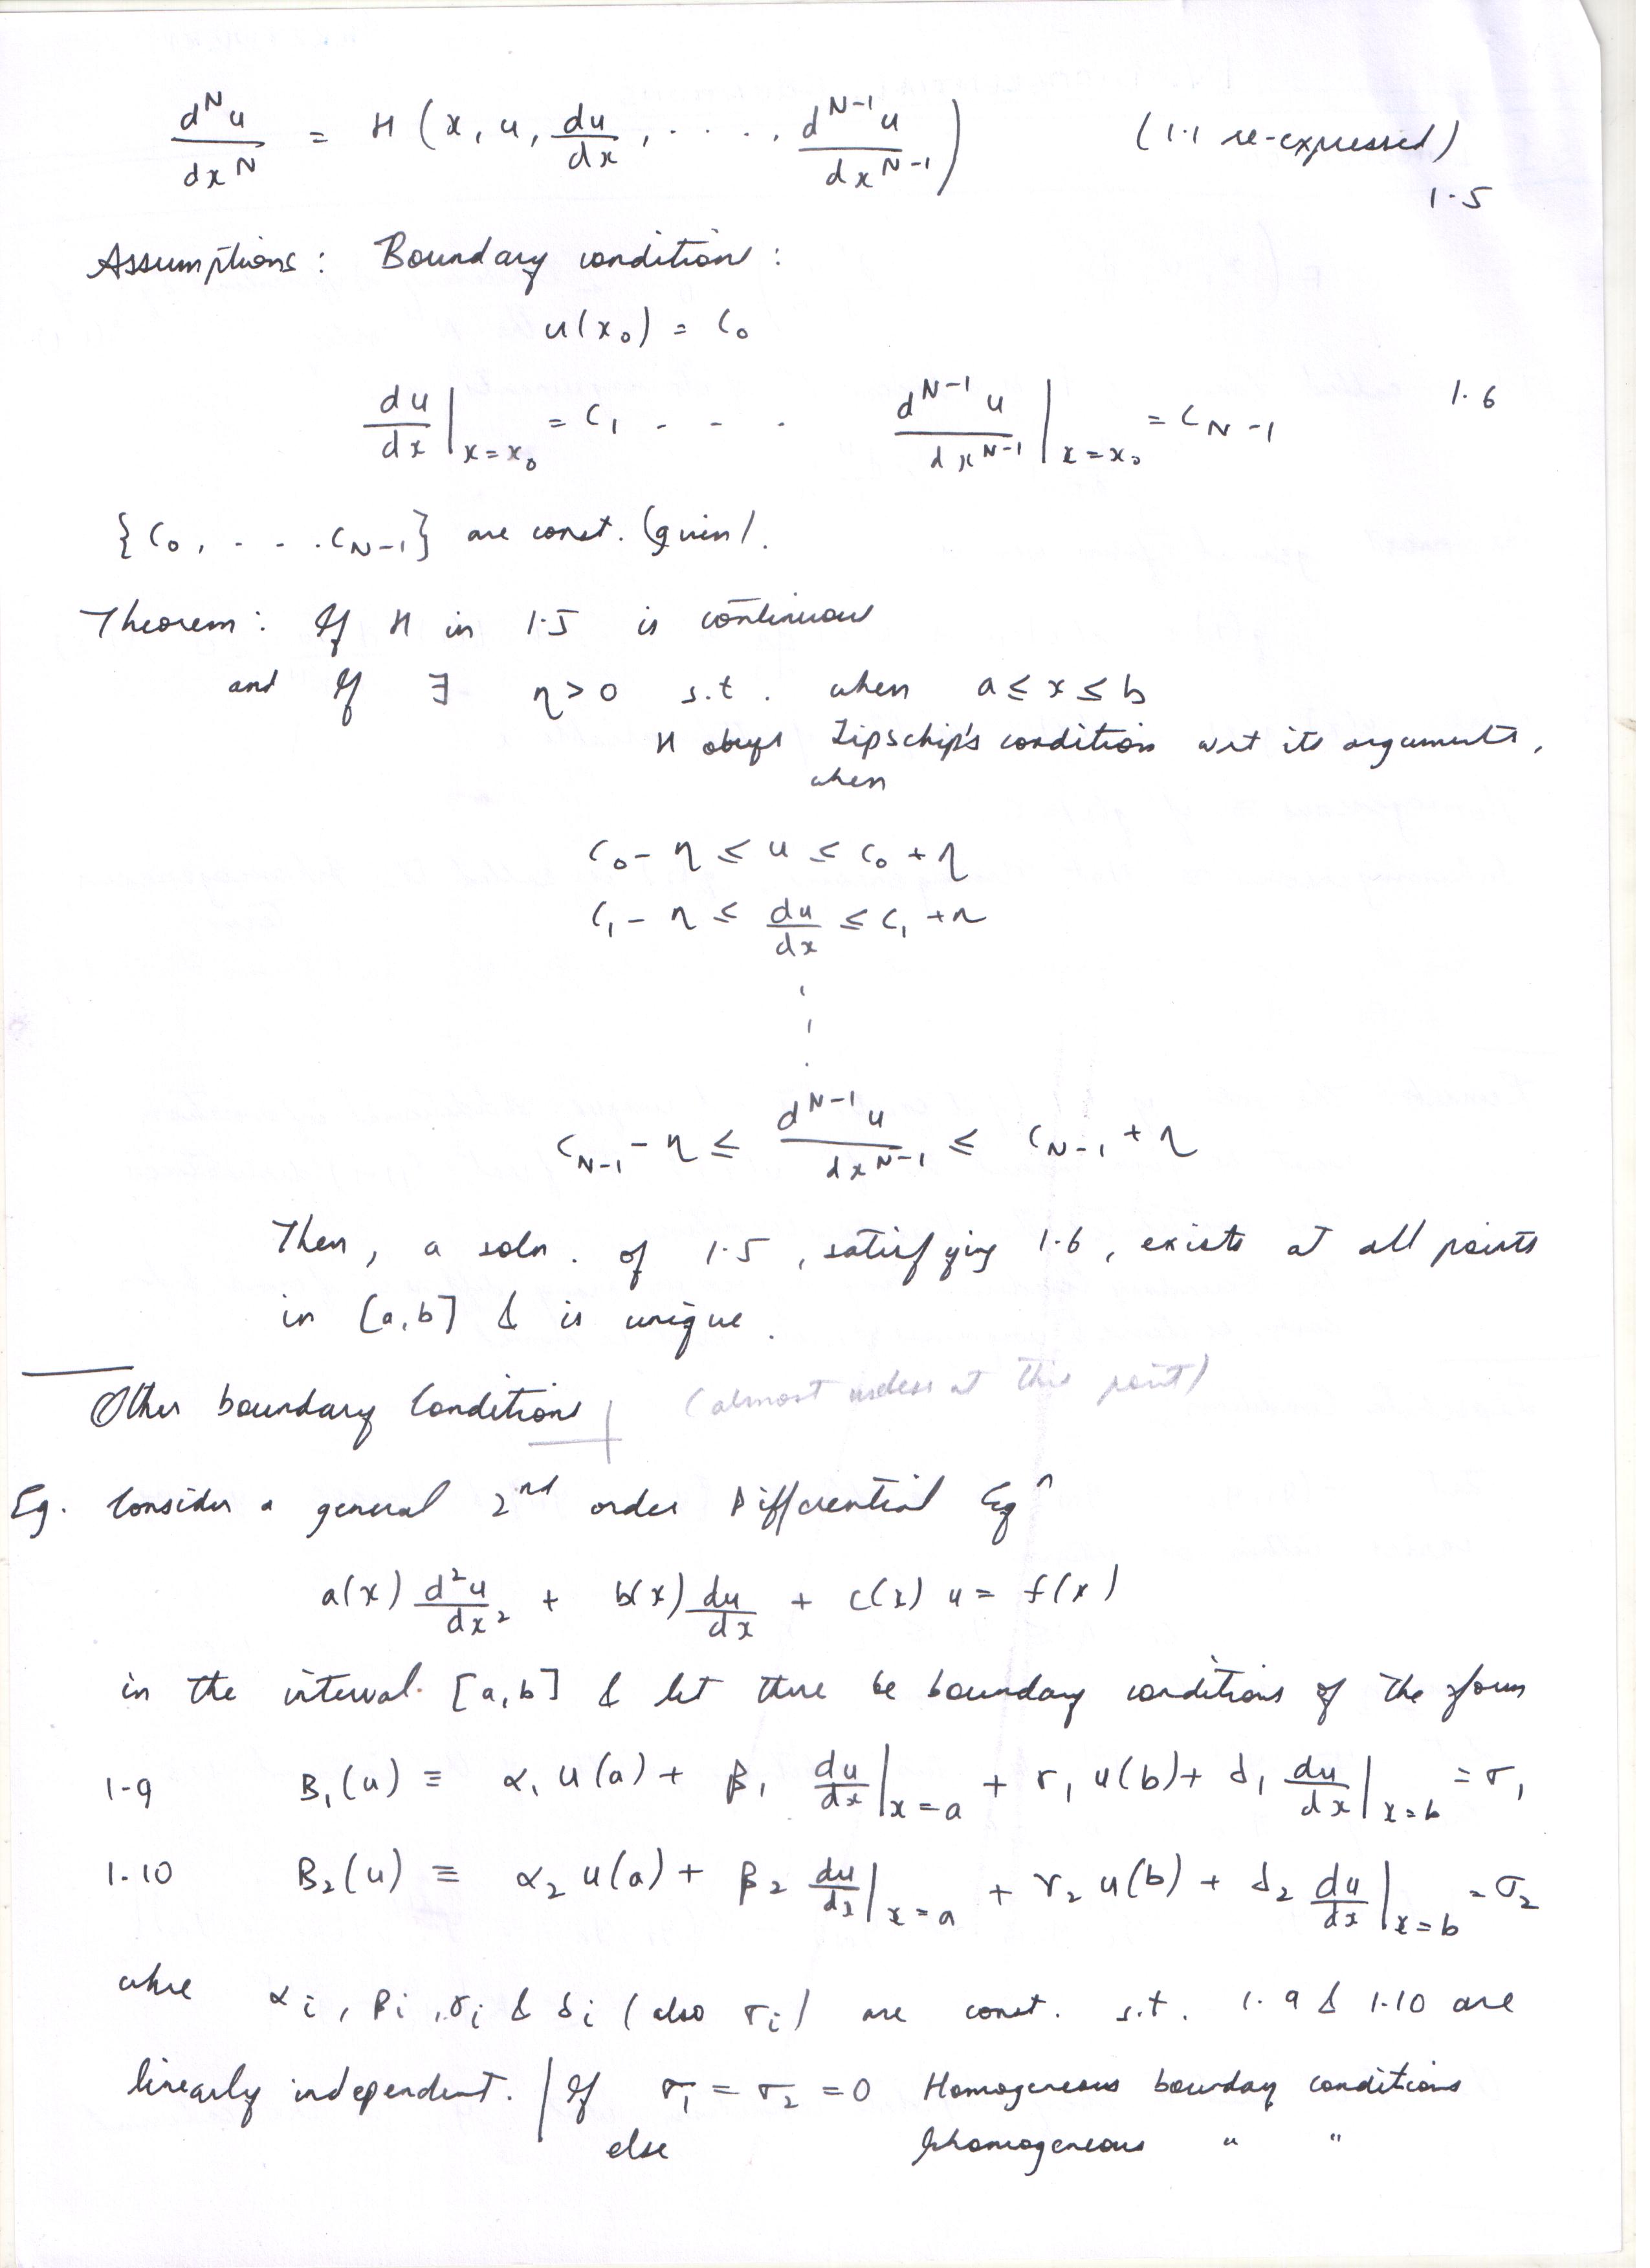 d^N u / dx^N = H ( x, u, du/dx, . . . . , d^{N-1} u / dx^{N-1} ) (1.1 re-expressed)
1.5
Assumptions : Boundary condition :
u(x₀) = C₀
du/dx |_{x=x₀} = C₁ - - - d^{N-1} u / dx^{N-1} |_{x=x₀} = C_{N-1} 1.6
{C₀, - . . . C_{N-1}} are const. (given).
Theorem : If H in 1.5 is continuous
and if ∃ η > 0 s.t. when a ≤ x ≤ b
H obeys Lipschip's condition wrt its arguments,
when
C₀ - η ≤ u ≤ C₀ + η
C₁ - η ≤ du/dx ≤ C₁ + η
C_{N-1} - η ≤ d^{N-1} u / dx^{N-1} ≤ C_{N-1} + η
Then, a soln. of 1.5, satisfying 1.6, exists at all points
in [a,b] & is unique.
Other boundary Conditions (almost useless at this point)
Eg. Consider a general 2nd order Differential Eqⁿ
a(x) d²u/dx² + b(x) du/dx + c(x) u = f(x)
in the interval [a,b] & let there be boundary conditions of the form
1-9 B₁(u) ≡ α₁ u(a) + β₁ du/dx |_{x=a} + γ₁ u(b) + δ₁ du/dx |_{x=b} = σ₁
1.10 B₂(u) ≡ α₂ u(a) + β₂ du/dx |_{x=a} + γ₂ u(b) + δ₂ du/dx |_{x=b} = σ₂
where αi, βi, γi & δi (also σi) are const. s.t. 1.9 & 1.10 are
linearly independent. | If σ₁ = σ₂ = 0 Homogeneous boundary conditions
else Inhomogeneous " "